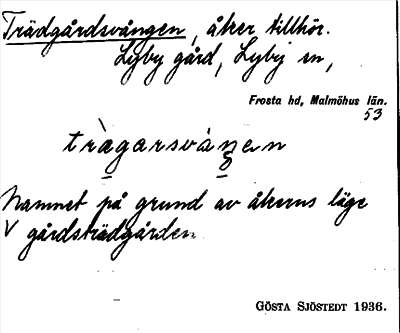 Trädgårdsvången, åker tillhör.
Lyby gård, Lyby sn,
Frosta hd, Malmöhus län.
53
Namnet på grund av åkerns läge
V gårdsträdgården
GÖSTA SJÖSTEDT 1936.